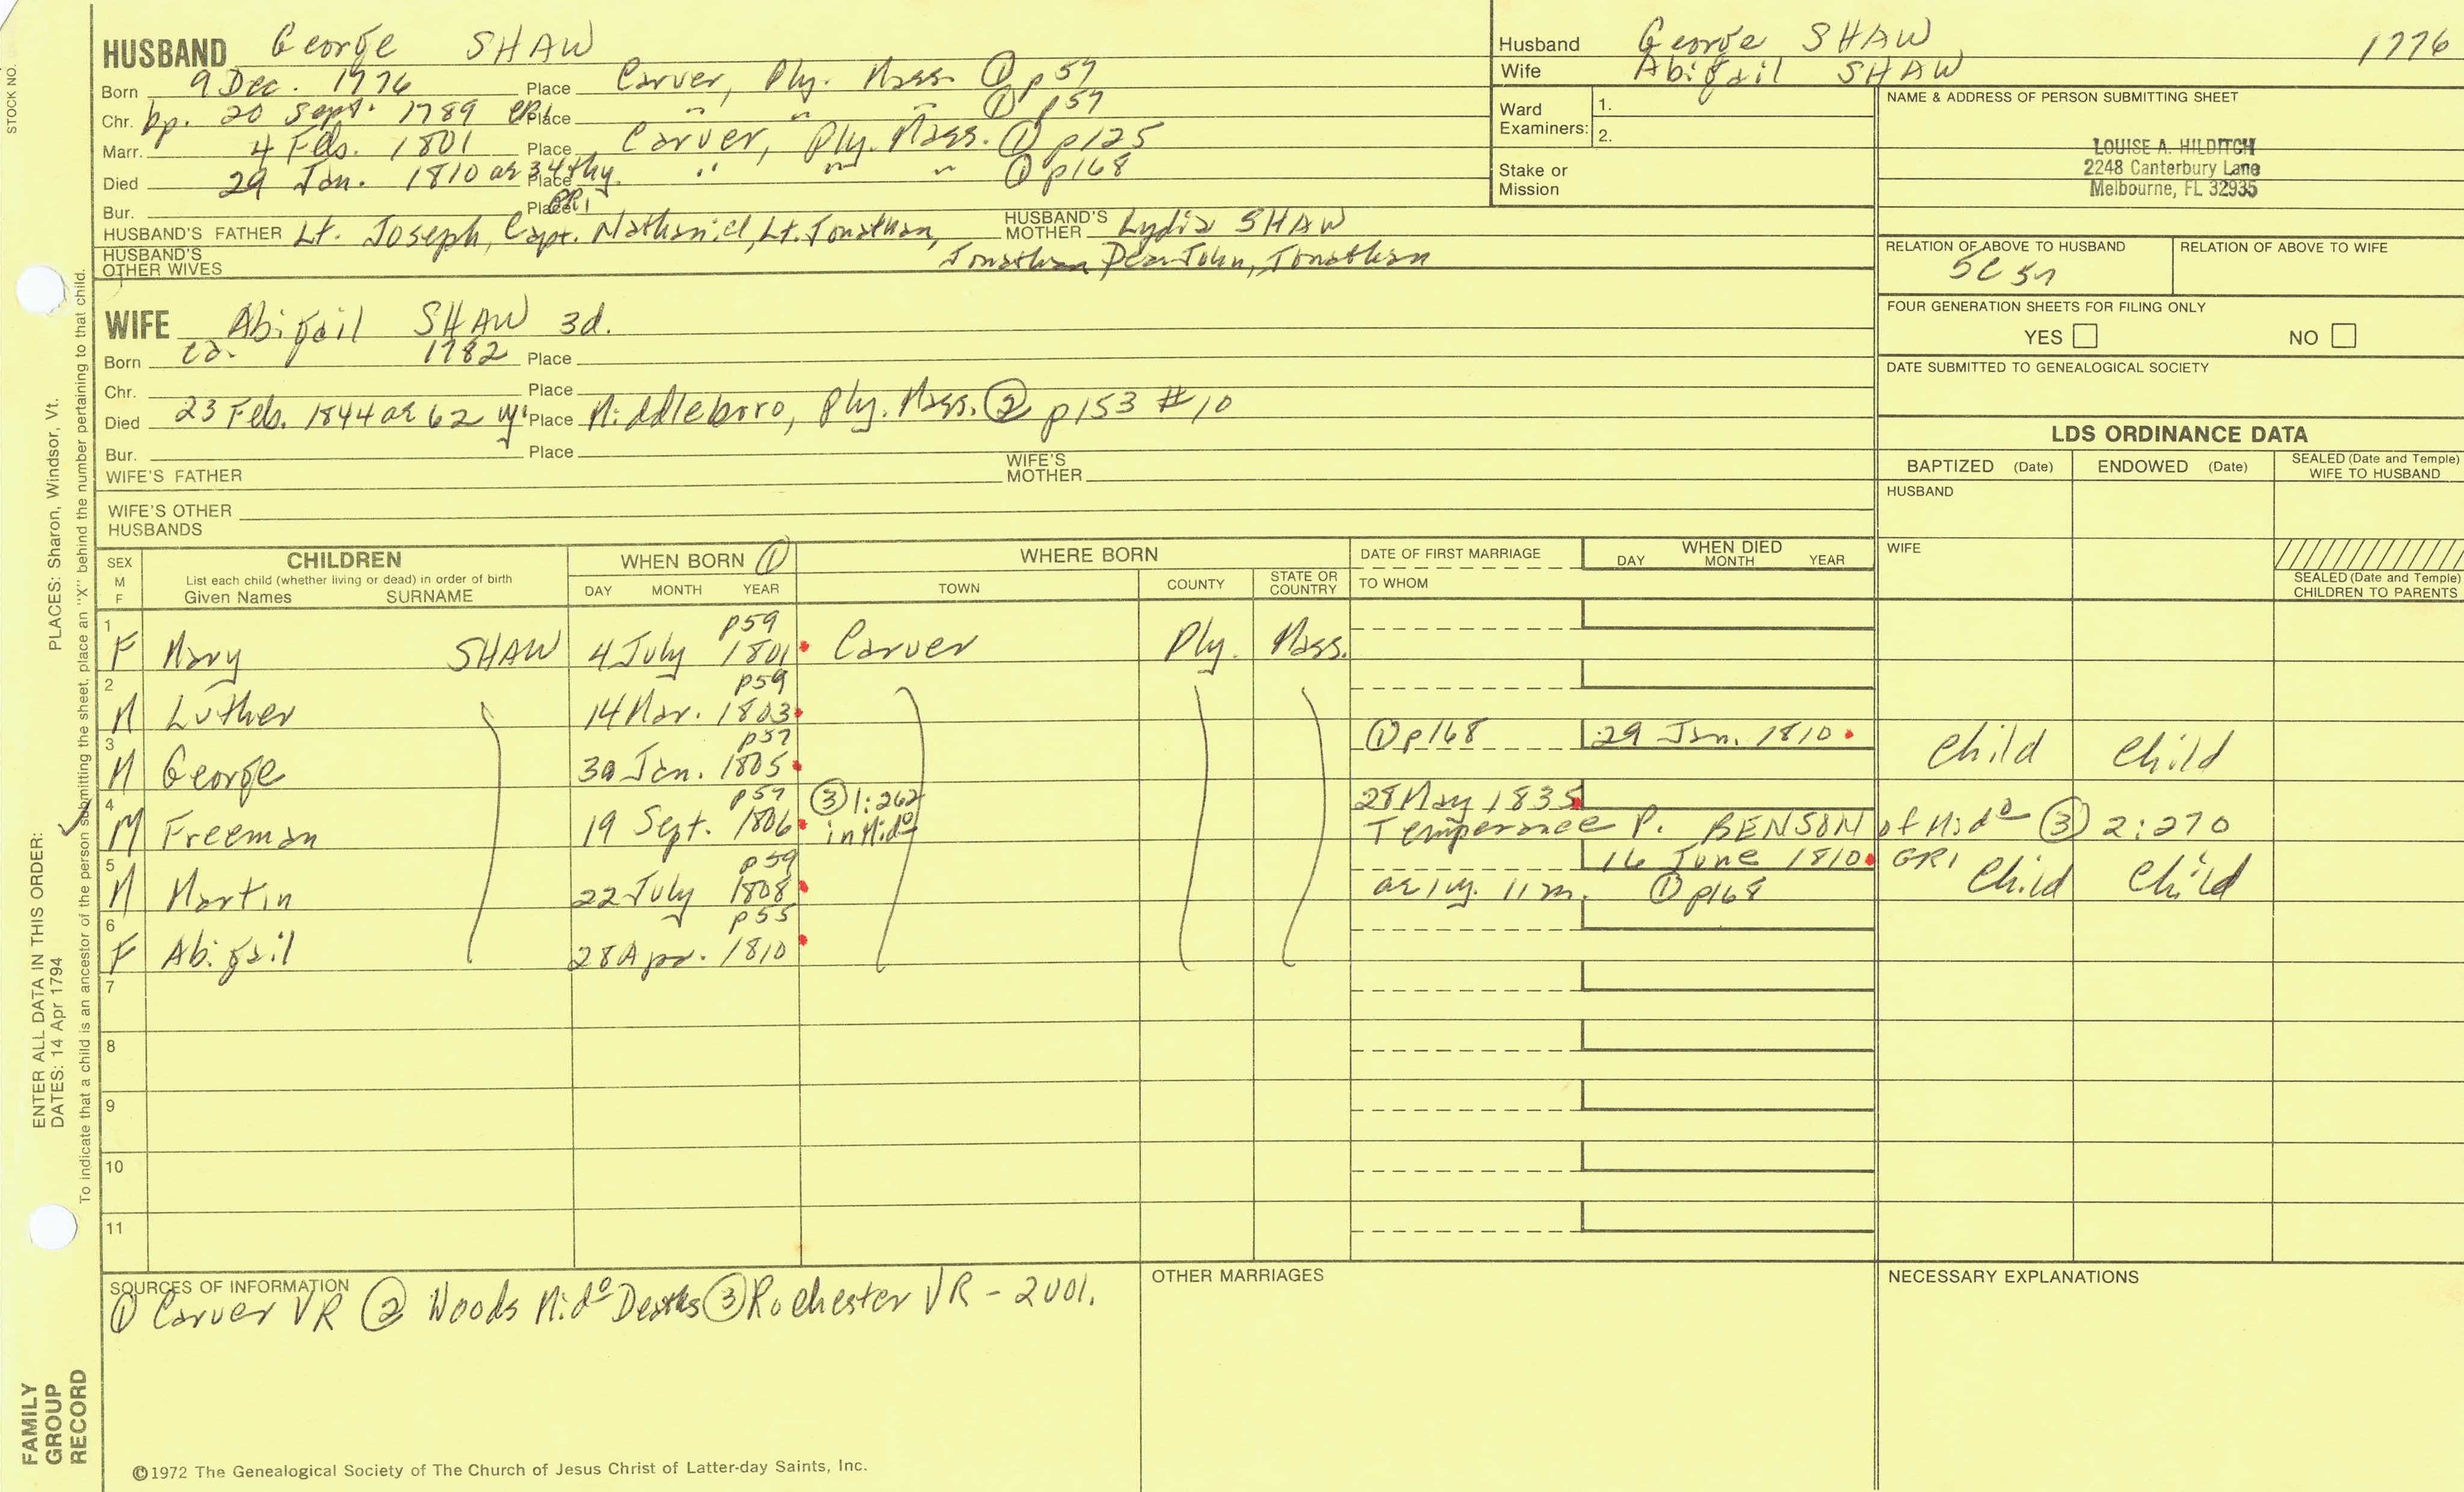 HUSBAND George SHAW
Born 9 Dec. 1776 Place Carver, Ply. Mass. ① p57
Chr. bp. 20 Sept. 1789 CR1 Place " " " ① p57
Marr. 4 Feb. 1801 Place Carver, Ply. Mass. ① p125
Died 29 Jan. 1810 ae 34thy. Place " " " ① p168
Bur. Place GR1
HUSBAND'S FATHER Lt. Joseph, Capt. Nathaniel, Lt. Jonathan, HUSBAND'S MOTHER Lydia SHAW
HUSBAND'S OTHER WIVES Jonathan Dea. John, Jonathan
WIFE Abigail SHAW 3d.
Born ca. 1782 Place
Chr. Place
Died 23 Feb. 1844 ae 62 y. Place Middleboro, Ply. Mass. ② p153 #10
Bur. Place
WIFE'S FATHER WIFE'S MOTHER
WIFE'S OTHER HUSBANDS
Husband George SHAW 1776
Wife Abigail SHAW
Ward Examiners: 1.
2.
Stake or Mission
NAME & ADDRESS OF PERSON SUBMITTING SHEET
LOUISE A. HILDITCH
2248 Canterbury Lane
Melbourne, FL 32935
RELATION OF ABOVE TO HUSBAND RELATION OF ABOVE TO WIFE
5C 5r
FOUR GENERATION SHEETS FOR FILING ONLY
YES NO
DATE SUBMITTED TO GENEALOGICAL SOCIETY
LDS ORDINANCE DATA
BAPTIZED (Date) ENDOWED (Date) SEALED (Date and Temple) WIFE TO HUSBAND
HUSBAND
WIFE
SEALED (Date and Temple) CHILDREN TO PARENTS
SEX M F CHILDREN WHEN BORN ① WHERE BORN DATE OF FIRST MARRIAGE WHEN DIED
List each child (whether living or dead) in order of birth
Given Names SURNAME DAY MONTH YEAR TOWN COUNTY STATE OR COUNTRY TO WHOM DAY MONTH YEAR
1 p59
F Mary SHAW 4 July 1801 Carver Ply. Mass.
2 p59
M Luther 14 Mar. 1803
3 p57 ① p168 29 Jan. 1810 Child Child
M George 30 Jan. 1805
4 p57 ③ 1:262 28 May 1835
M Freeman 19 Sept. 1806 in Mid° Temperance P. BENSON of Mid° ③ 2:270
5 p59 16 June 1810 GR1 Child Child
M Martin 22 July 1808 ae 1y. 11m. ① p168
6 p55
F Abigail 28 Apr. 1810
7
8
9
10
11
SOURCES OF INFORMATION
① Carver VR ② Woods Mid° Deaths ③ Rochester VR - 2001.
OTHER MARRIAGES
NECESSARY EXPLANATIONS
©1972 The Genealogical Society of The Church of Jesus Christ of Latter-day Saints, Inc.
STOCK NO.
ENTER ALL DATA IN THIS ORDER: PLACES: Sharon, Windsor, Vt.
DATES: 14 Apr 1794
To indicate that a child is an ancestor of the person submitting the sheet, place an "X" behind the number pertaining to that child.
FAMILY
GROUP
RECORD